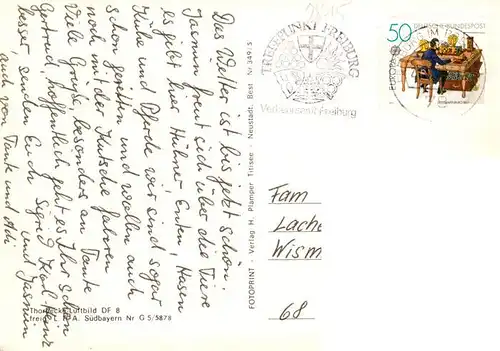 Das Wetter ist bis jetzt schön.
Jasmin freut sich über die Tiere
es gibt hier Hühner Enten, Hasen
Kühe und Pferde wir sind sogar
schon geritten und wollen auch
noch mit der Kutsche fahren
Viele Grüße besonders an Tante
Gertrud, hoffentlich geht es Ihr schon
besser senden Euch Sigrid Karl-Heinz
auch von Tante und und Jasmin
Thorbecke Luftbild DF 8
freig. L. R. A. Südbayern Nr G 5/5878
FOTOPRINT - Verlag H. Plamper Titisee - Neustadt. Best Nr 349: S
TREFFPUNKT FREIBURG
Verkehrsamt Freiburg
50
DEUTSCHE BUNDESPOST
EUROPA
Fam
Lache
Wism
68